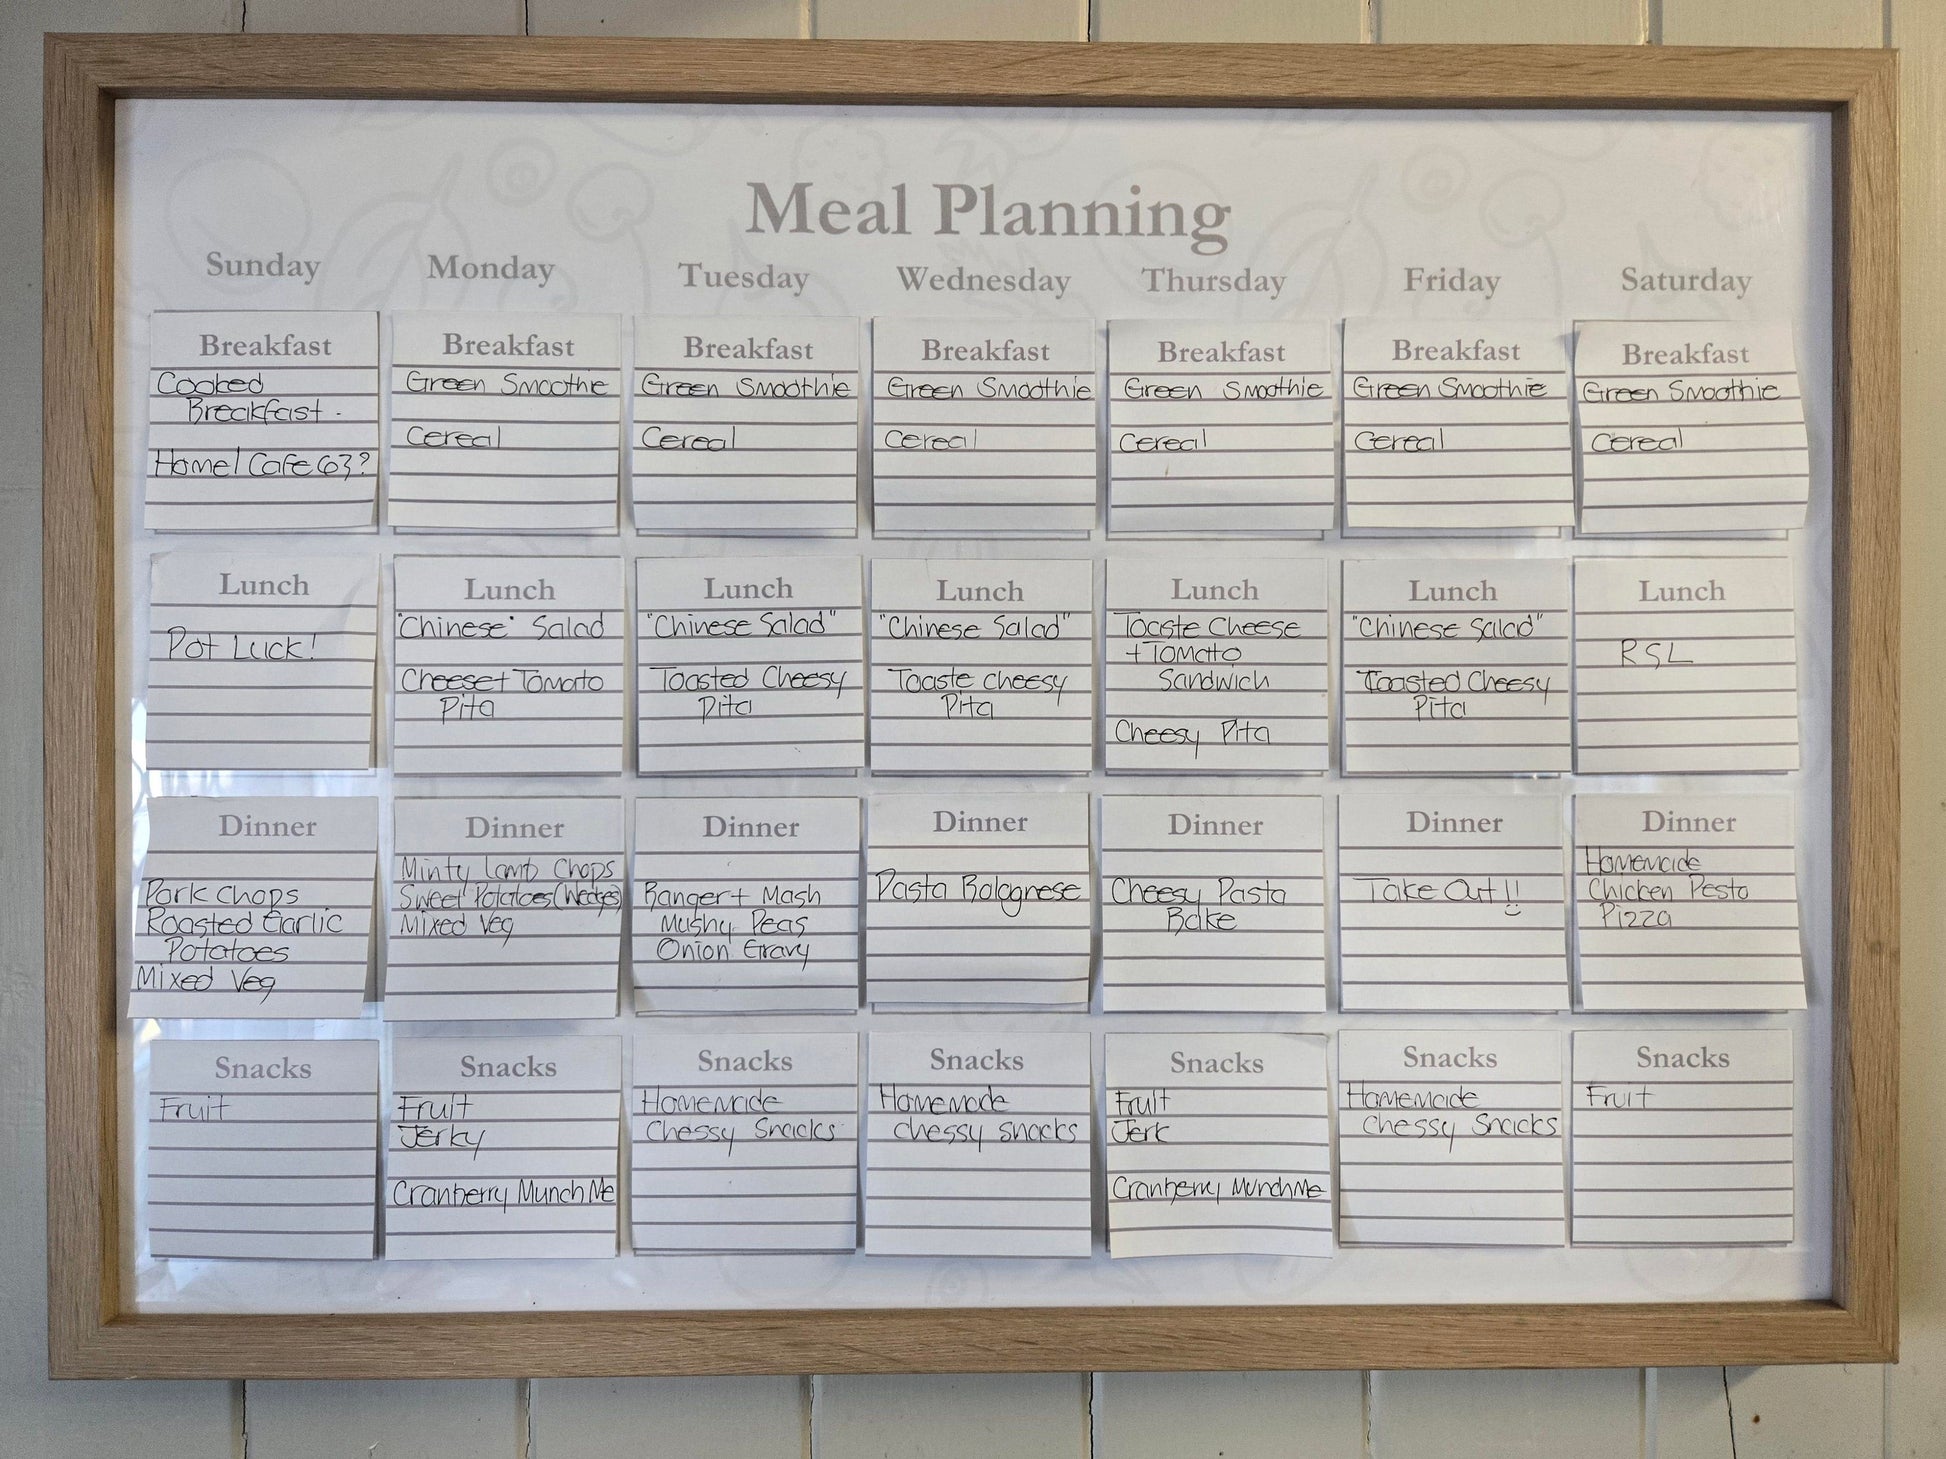 Meal Planning
Sunday
Monday
Tuesday
Wednesday
Thursday
Friday
Saturday
Breakfast
Cooked
Breakfast.
Home/Cafe 63?
Breakfast
Green Smoothie
Cereal
Breakfast
Green Smoothie
Cereal
Breakfast
Green Smoothie
Cereal
Breakfast
Green Smoothie
Cereal
Breakfast
Green Smoothie
Cereal
Breakfast
Green Smoothie
Cereal
Lunch
Pot Luck!
Lunch
"Chinese" Salad
Cheese+Tomato
Pita
Lunch
"Chinese Salad"
Toasted Cheesy
Pita
Lunch
"Chinese Salad"
Toaste cheesy
Pita
Lunch
Toaste Cheese
+Tomato
Sandwich
Cheesy Pita
Lunch
"Chinese Salad"
Toasted Cheesy
Pita
Lunch
RSL
Dinner
Pork Chops
Roasted Garlic
Potatoes
Mixed Veg
Dinner
Minty Lamb Chops
Sweet Potatoes (Wedges)
Mixed Veg
Dinner
Banger + Mash
Mushy Peas
Onion Gravy
Dinner
Pasta Bolognese
Dinner
Cheesy Pasta
Bake
Dinner
Take Out!!
Dinner
Homemade
Chicken Pesto
Pizza
Snacks
Fruit
Snacks
Fruit
Jerky
Cranberry Munch Me
Snacks
Homemade
Chessy Snacks
Snacks
Homemade
chessy snacks
Snacks
Fruit
Jerk
Cranberry MunchMe
Snacks
Homemade
Chessy Snacks
Snacks
Fruit